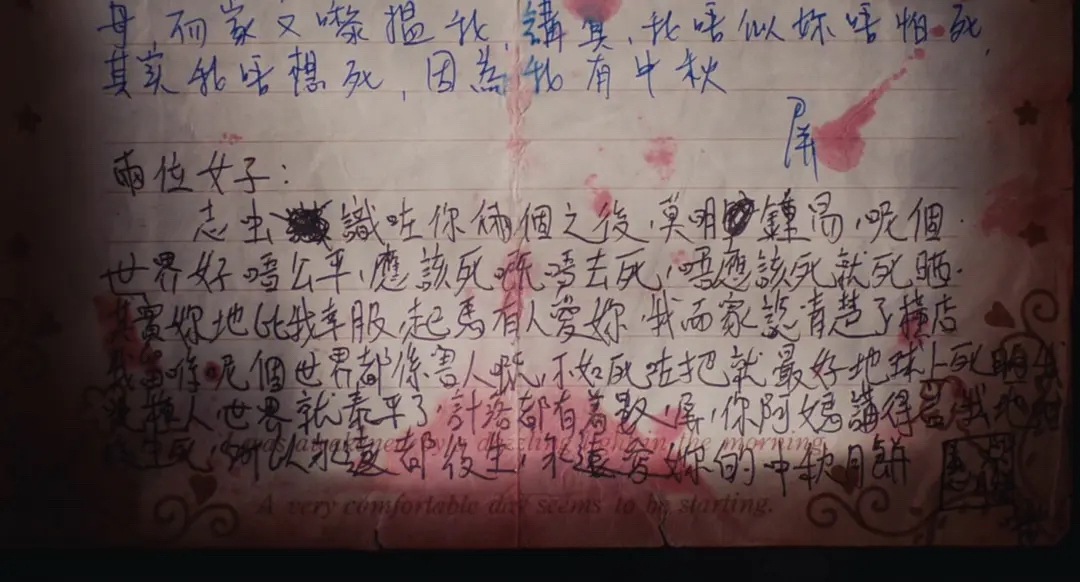 母,而家又嚟搵我,講真,我唔似妳唔怕死,
其實我唔想死,因為我有中秋
屏
兩位女子:
志虫 識咗你倆個之後,莫明 鍾 ,呢個
世界好唔公平,應該死嘅唔去死,唔應該死就死晒
其實妳地比我幸服,起馬有人愛妳,我而家 清楚了
呢個世界都係害人嘅,不如死咗把就最好地球上死晒
種人,世界就泰平了,計落都有着數,屏,你阿媽講得 我地
死,所以永遠都後生,永遠愛妳的中秋月餅
in the morning
A very comfortable day seems to be starting.